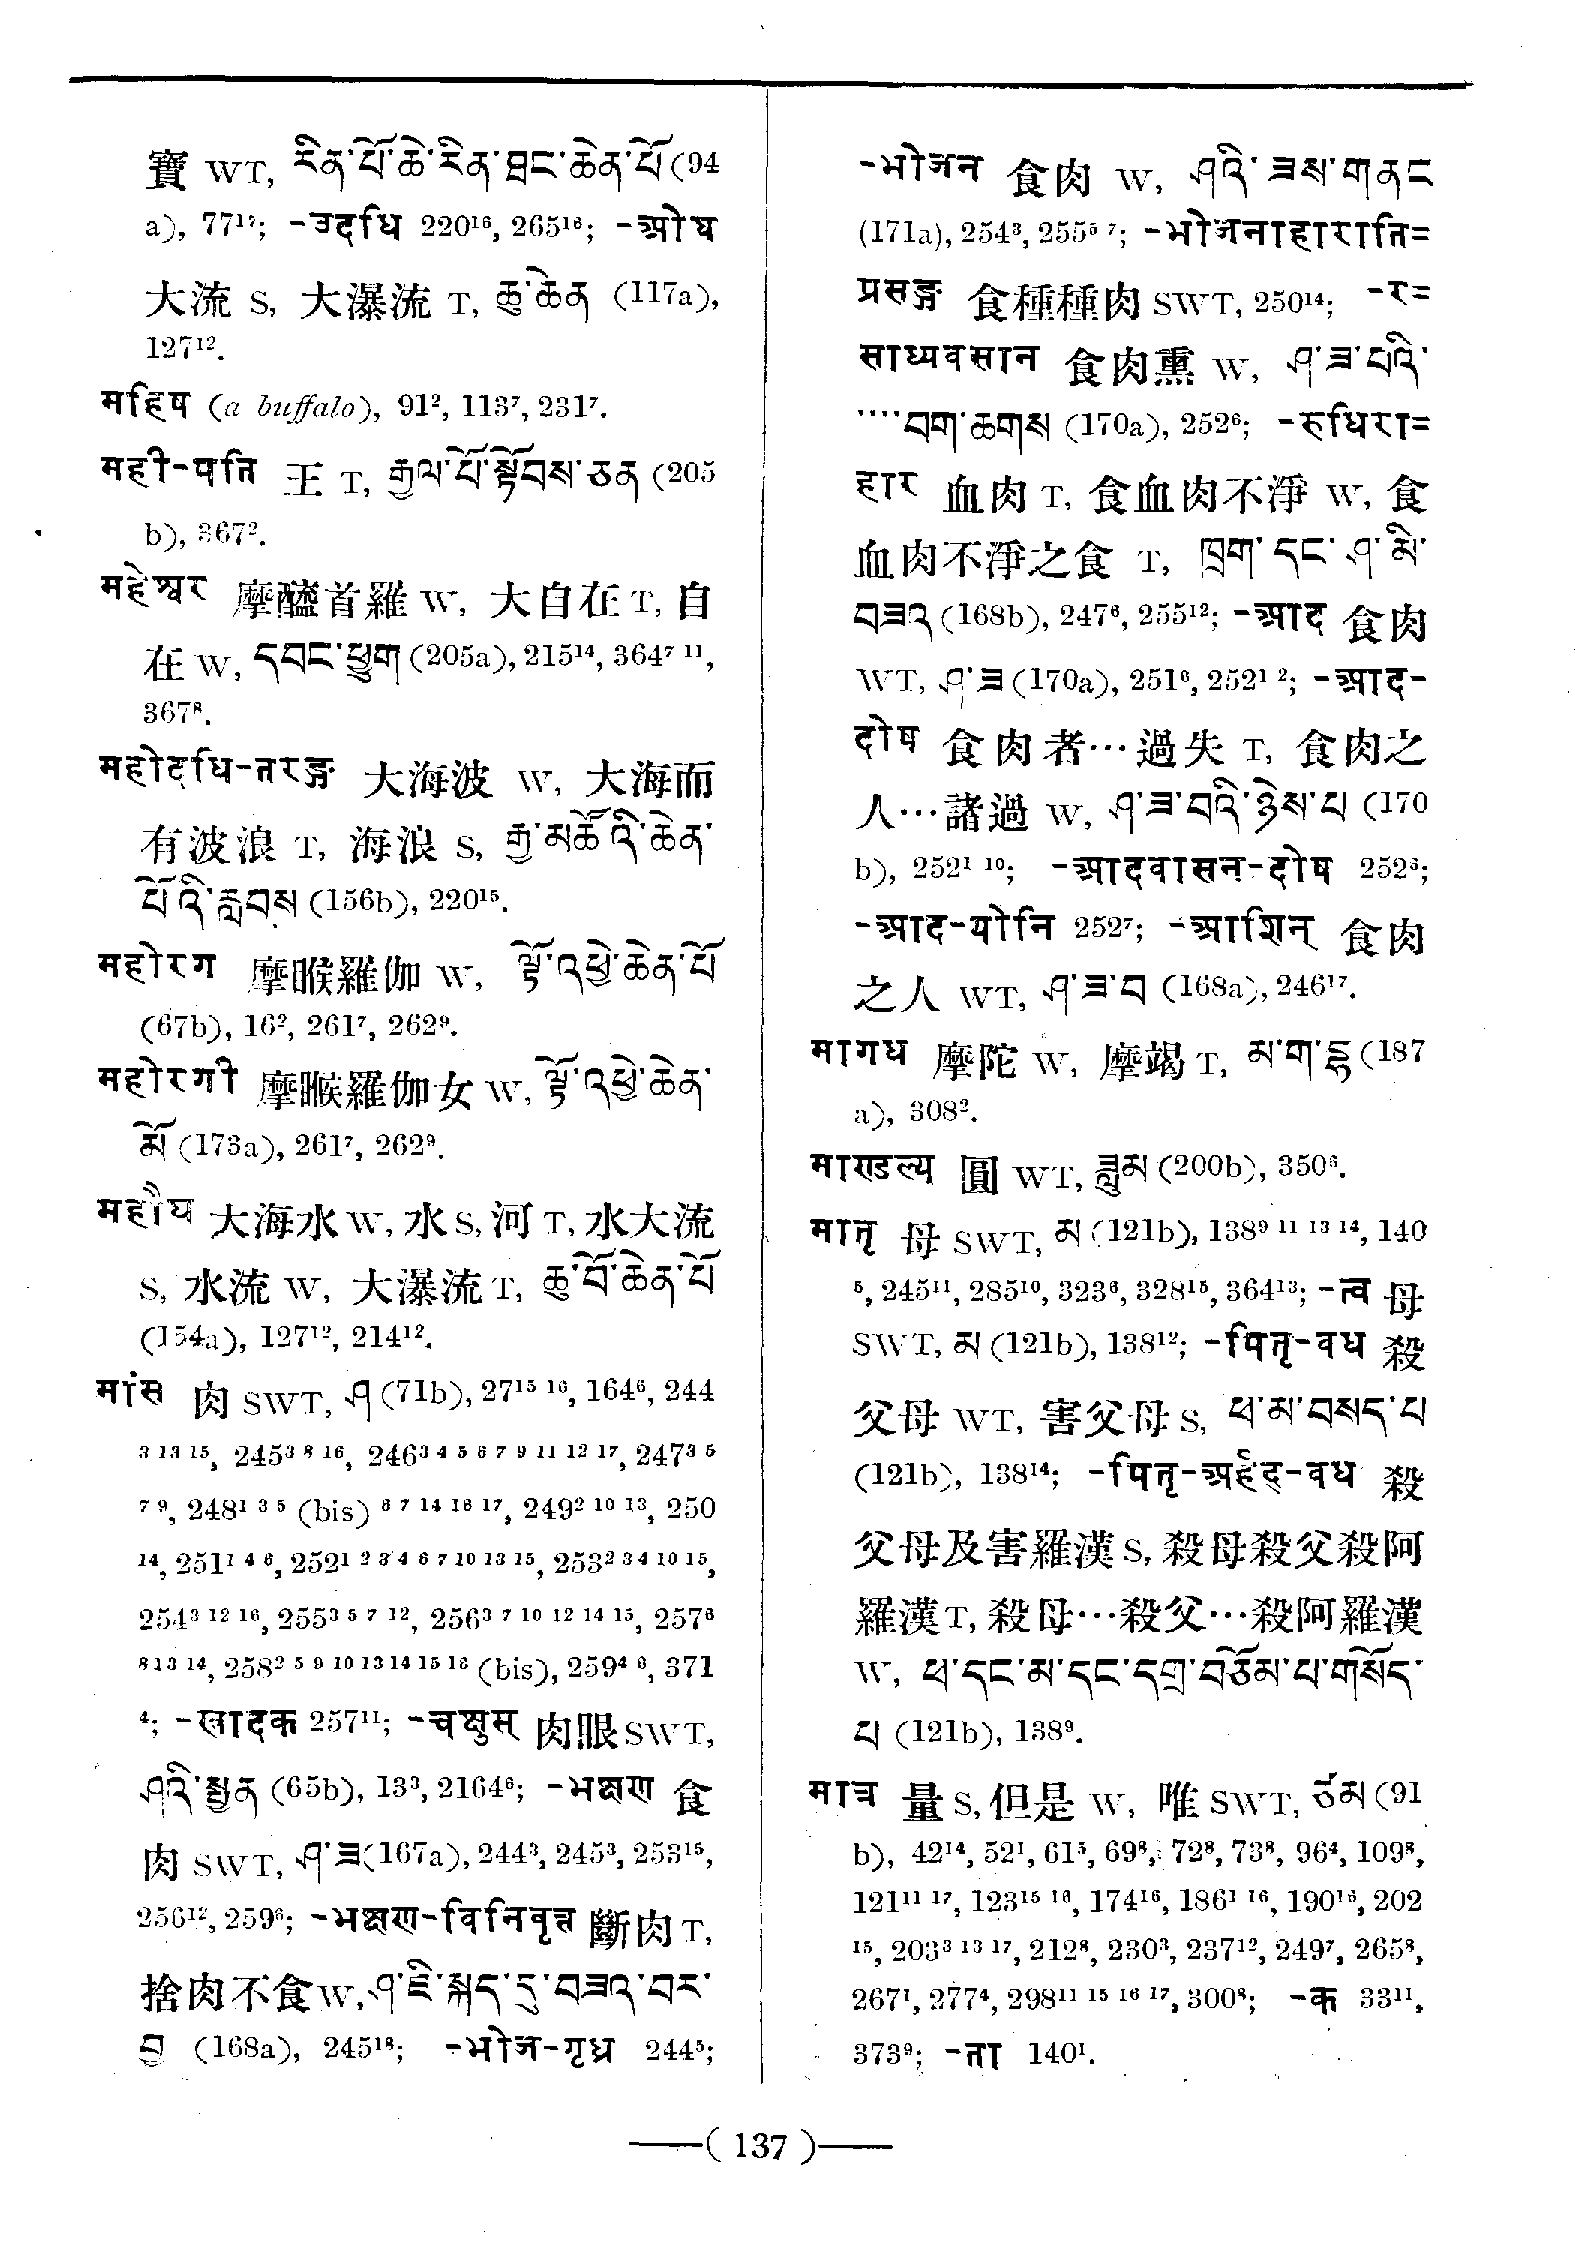 寶 WT, རིན་པོ་ཆེ་རིན་ཐང་ཆེན་པོ (94
a), 77¹⁷; -उदधि 220¹⁶, 265¹⁶; -ओघ
大流 S, 大瀑流 T, ཆུ་ཆེན (117a),
127¹².
महिष (a buffalo), 91², 113⁷, 231⁷.
मही-पति 王 T, རྒྱལ་པོ་སྟོབས་ཅན (205
b), 367².
महेश्वर 摩醯首羅 W, 大自在 T, 自
在 W, དབང་ཕྱུག (205a), 215¹⁴, 364⁷ ¹¹,
367⁸.
महोदधि-तरङ्ग 大海波 W, 大海而
有波浪 T, 海浪 S, རྒྱ་མཚོའི་ཆེན་
པོའི་རླབས (156b), 220¹⁵.
महोरग 摩睺羅伽 W, ལྟོ་འཕྱེ་ཆེན་པོ
(67b), 16², 261⁷, 262⁹.
महोरगी 摩睺羅伽女 W, ལྟོ་འཕྱེ་ཆེན་
མོ (173a), 261⁷, 262⁹.
महौघ 大海水 W, 水 S, 河 T, 水大流
S, 水流 W, 大瀑流 T, ཆུ་བོ་ཆེན་པོ
(154a), 127¹², 214¹².
मांस 肉 SWT, ཤ (71b), 27¹⁵ ¹⁶, 164⁶, 244
³ ¹³ ¹⁵, 245³ ⁸ ¹⁶, 246³ ⁴ ⁵ ⁶ ⁷ ⁹ ¹¹ ¹² ¹⁷, 247³ ⁵
⁷ ⁹, 248¹ ³ ⁵ (bis) ⁶ ⁷ ¹⁴ ¹⁶ ¹⁷, 249² ¹⁰ ¹³, 250
¹⁴, 251¹ ⁴ ⁶, 252¹ ² ³ ⁴ ⁶ ⁷ ¹⁰ ¹³ ¹⁵, 253² ³ ⁴ ¹⁰ ¹⁵,
254³ ¹² ¹⁶, 255³ ⁵ ⁷ ¹², 256³ ⁷ ¹⁰ ¹² ¹⁴ ¹⁵, 257⁶
⁸ ¹³ ¹⁴, 258² ⁵ ⁹ ¹⁰ ¹³ ¹⁴ ¹⁵ ¹⁶ (bis), 259⁴ ⁶, 371
⁴; -खादक 257¹¹; -चक्षुस् 肉眼 SWT,
ཤའི་སྤྱན (65b), 13³, 2164⁶; -भक्षण 食
肉 SWT, ཤ་ཟ (167a), 244³, 245³, 253¹⁵,
256¹², 259⁶; -भक्षण-विनिवृत्त 斷肉 T,
捨肉不食 W, ཤ་ཇི་སྐད་དུ་བཟའ་བར་
བྱ (168a), 245¹⁸; -भोज-गृध्र 244⁵;
-भोजन 食肉 W, ཤའི་ཟས་གནང
(171a), 254³, 255⁵ ⁷; -भोजनाहाराति=
प्रसङ्ग 食種種肉 SWT, 250¹⁴; -र=
साध्यवसान 食肉熏 W, ཤ་ཟ་བའི་
····བག་ཆགས (170a), 252⁶; -रुधिरा=
हार 血肉 T, 食血肉不淨 W, 食
血肉不淨之食 T, ཁྲག་དང་ཤ་མི་
བཟའ (168b), 247⁶, 255¹²; -आद 食肉
WT, ཤ་ཟ (170a), 251⁶, 252¹ ²; -आद-
दोष 食肉者…過失 T, 食肉之
人…諸過 W, ཤ་ཟ་བའི་ཉེས་པ (170
b), 252¹ ¹⁰; -आदवासन-दोष 252³;
-आद-योनि 252⁷; -आशिन् 食肉
之人 WT, ཤ་ཟ་བ (168a), 246¹⁷.
मागध 摩陀 W, 摩竭 T, མ་ག་དྷ (187
a), 308².
माण्डल्य 圓 WT, ཟླུམ (200b), 350⁵.
मातृ 母 SWT, མ (121b), 138⁹ ¹¹ ¹³ ¹⁴, 140
⁵, 245¹¹, 285¹⁰, 323⁶, 328¹⁵, 364¹³; -त्व 母
SWT, མ (121b), 138¹²; -पितृ-वध 殺
父母 WT, 害父母 S, ཕ་མ་བསད་པ
(121b), 138¹⁴; -पितृ-अर्हद्-वध 殺
父母及害羅漢 S, 殺母殺父殺阿
羅漢 T, 殺母…殺父…殺阿羅漢
W, ཕ་དང་མ་དང་དགྲ་བཅོམ་པ་གསོད་
པ (121b), 138⁹.
मात्र 量 S, 但是 W, 唯 SWT, ཙམ (91
b), 42¹⁴, 52¹, 61⁵, 69⁸, 72⁸, 73⁸, 96⁴, 109⁸,
121¹¹ ¹⁷, 123¹⁵ ¹⁶, 174¹⁶, 186¹ ¹⁶, 190¹⁶, 202
¹⁵, 203³ ¹³ ¹⁷, 212⁸, 230³, 237¹², 249⁷, 265⁸,
267¹, 277⁴, 298¹¹ ¹⁵ ¹⁶ ¹⁷, 300⁸; -क 33¹¹,
373⁹; -ता 140¹.
—( 137 )—